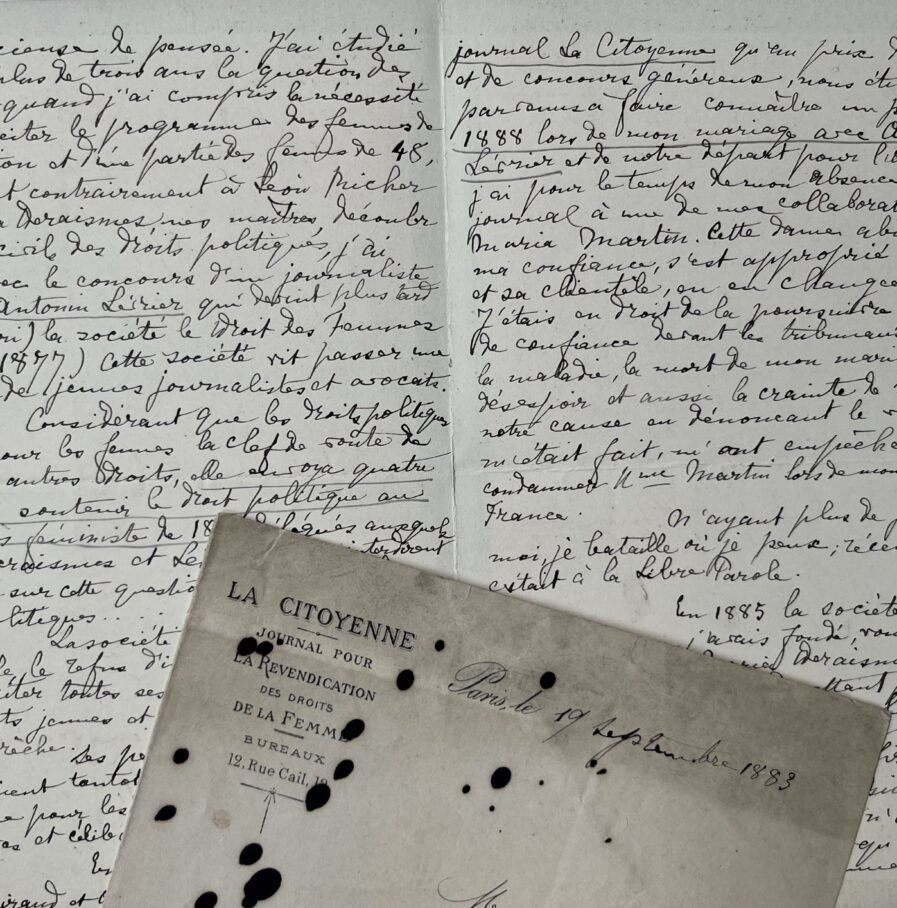 cieuse de pensée. J'ai étudié
plus de trois ans la question des
quand j'ai compris la nécessité
citer le programme des femmes de
ion et d'une partie des femes de 48,
t contrairement à Léon Richer
a Deraismes nos maîtres découler
civil des droits politiqués, j'ai
ec le concours d'un journaliste
Antonin Lévrier qui devint plus tard
ri) la société le Droit des Femmes
1877) Cette société vit passer une
de jeunes journalistes et avocats.
Considérant que les droits politiques
our les femmes la clef de voûte de
autres droits, elle envoya quatre
soutenir le droit politique au
s féministe de 18 délégués auxquels
eraismes et Le interdirent
sur cette questio
litiques...
La société
le le refus d'i
citer toutes ses
ts jeunes et
rêche.
Ses pe
ient tantôt
e pour les
es et célib
En
journal La Citoyenne qu'au prix d
et de concours généreux, nous éti
parvenus à faire connaître un p
1888 lors de mon mariage avec
Lévrier et de notre départ pour l'
j'ai pour le temps de mon absence
journal à une de mes collaborat
Maria Martin. Cette dame ab
ma confiance, s'est approprié
et sa clientèle, en en change
J'étais en droit de la poursuivre
de confiance devant les tribunau
la maladie, la mort de mon mari
désespoir et aussi la crainte de
notre cause en dénoncant le
m'était fait, m'ont empêché
condamner Mme Martin lors de mon
France.
N'ayant plus de j
moi, je bataille où je peux; récem
c'était à la Libre Parole.
En 1885 la société
j'avais fondé, vou
Deraisme
LA CITOYENNE
JOURNAL POUR
LA REVENDICATION
DES DROITS
DE LA FEMME
BUREAUX
12, Rue Cail, 12
Paris, le 19 septembre 1883